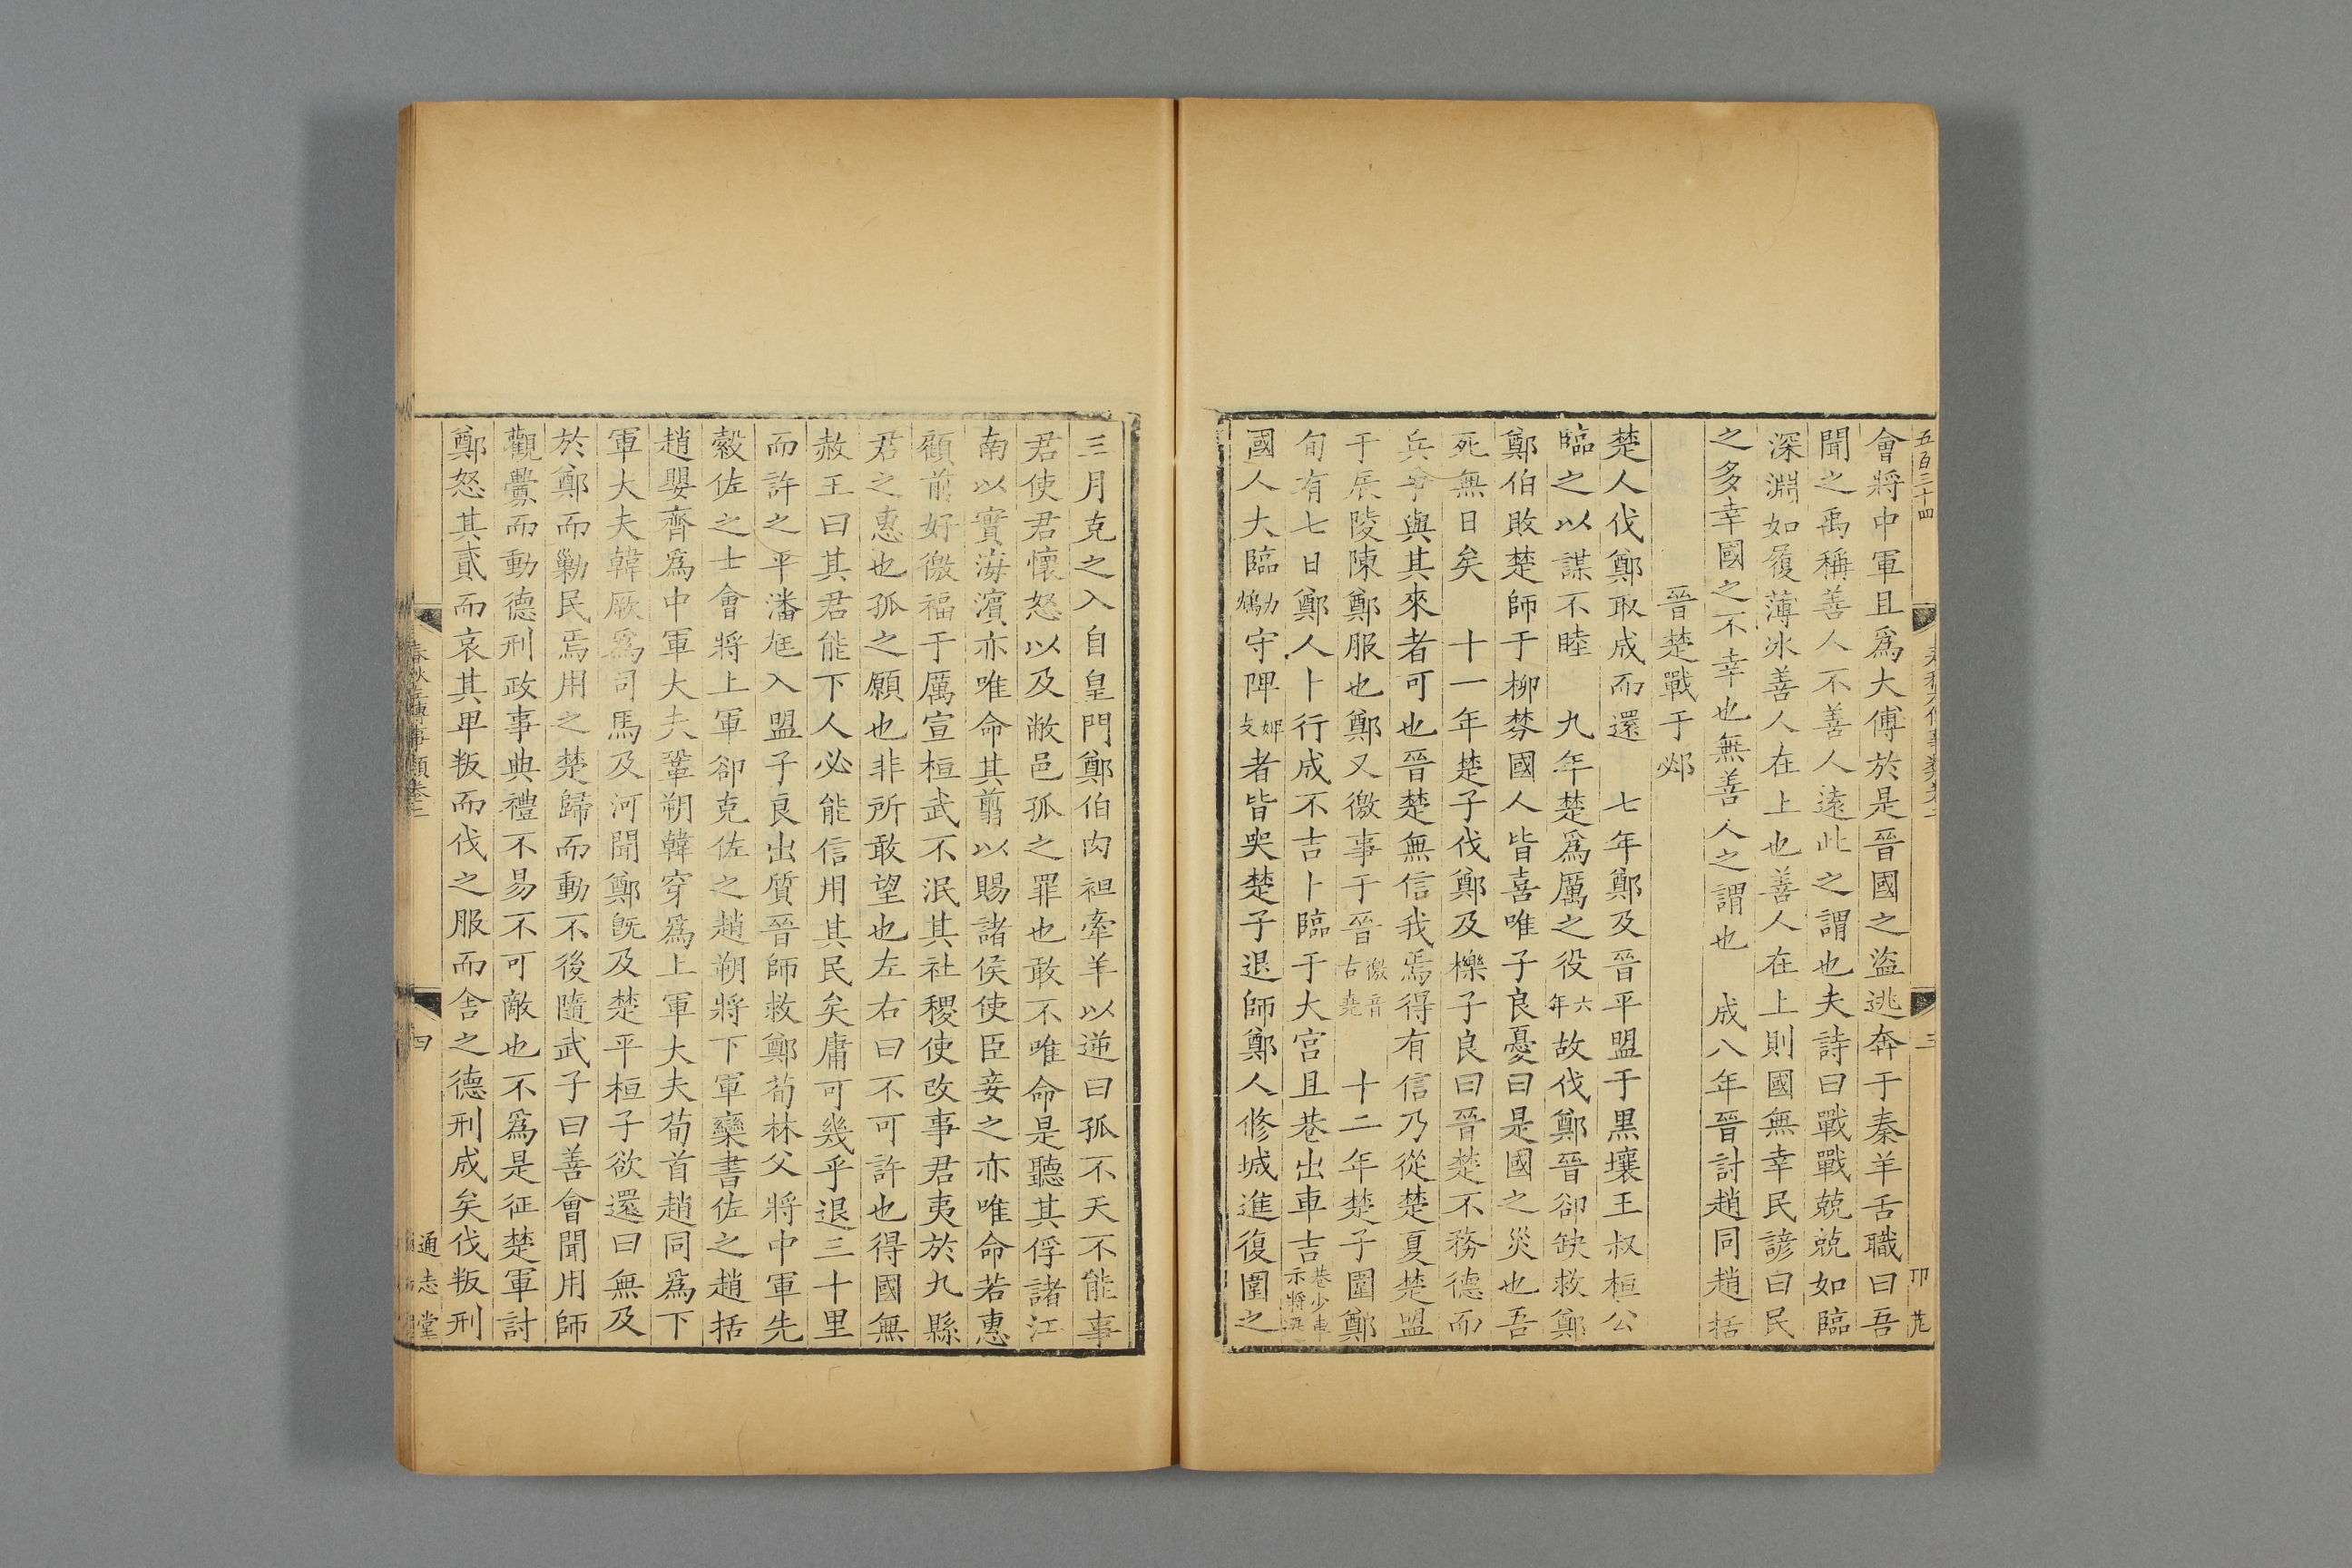 五百三十四
三
會將中軍且爲大傅於是晉國之盜逃奔于秦羊舌職曰吾
聞之禹稱善人不善人遠此之謂也夫詩曰戰戰兢兢如臨
深淵如履薄冰善人在上也善人在上則國無幸民諺曰民
之多幸國之不幸也無善人之謂也 成八年晉討趙同趙括
晉楚戰于邲
楚人伐鄭取成而還 七年鄭及晉平盟于黒壤王叔桓公
臨之以謀不睦 九年楚爲厲之役六年故伐鄭晉卻缺救鄭
鄭伯敗楚師于柳棼國人皆喜唯子良憂曰是國之災也吾
死無日矣 十一年楚子伐鄭及櫟子良曰晉楚不務德而
兵爭與其來者可也晉楚無信我焉得有信乃從楚夏楚盟
于辰陵陳鄭服也鄭又徼事于晉徼音古堯 十二年楚子圍鄭
旬有七日鄭人卜行成不吉卜臨于大宮且巷出車吉巷出車示將遷
國人大臨力鴆守陴婢支者皆哭楚子退師鄭人修城進復圍之
三月克之入自皇門鄭伯肉袒牽羊以逆曰孤不天不能事
君使君懷怒以及敝邑孤之罪也敢不唯命是聽其俘諸江
南以實海濱亦唯命其翦以賜諸侯使臣妾之亦唯命若惠
顧前好徼福于厲宣桓武不泯其社稷使改事君夷於九縣
君之惠也孤之願也非所敢望也左右曰不可許也得國無
赦王曰其君能下人必能信用其民矣庸可幾乎退三十里
而許之平潘尫入盟子良出質晉師救鄭荀林父將中軍先
縠佐之士會將上軍卻克佐之趙朔將下軍欒書佐之趙括
趙嬰齊爲中軍大夫鞏朔韓穿爲上軍大夫荀首趙同爲下
軍大夫韓厥爲司馬及河聞鄭旣及楚平桓子欲還曰無及
於鄭而勦民焉用之楚歸而動不後隨武子曰善會聞用師
觀釁而動德刑政事典禮不易不可敵也不爲是征楚軍討
鄭怒其貳而哀其卑叛而伐之服而舍之德刑成矣伐叛刑
春秋左傳事類卷二
四
通志堂